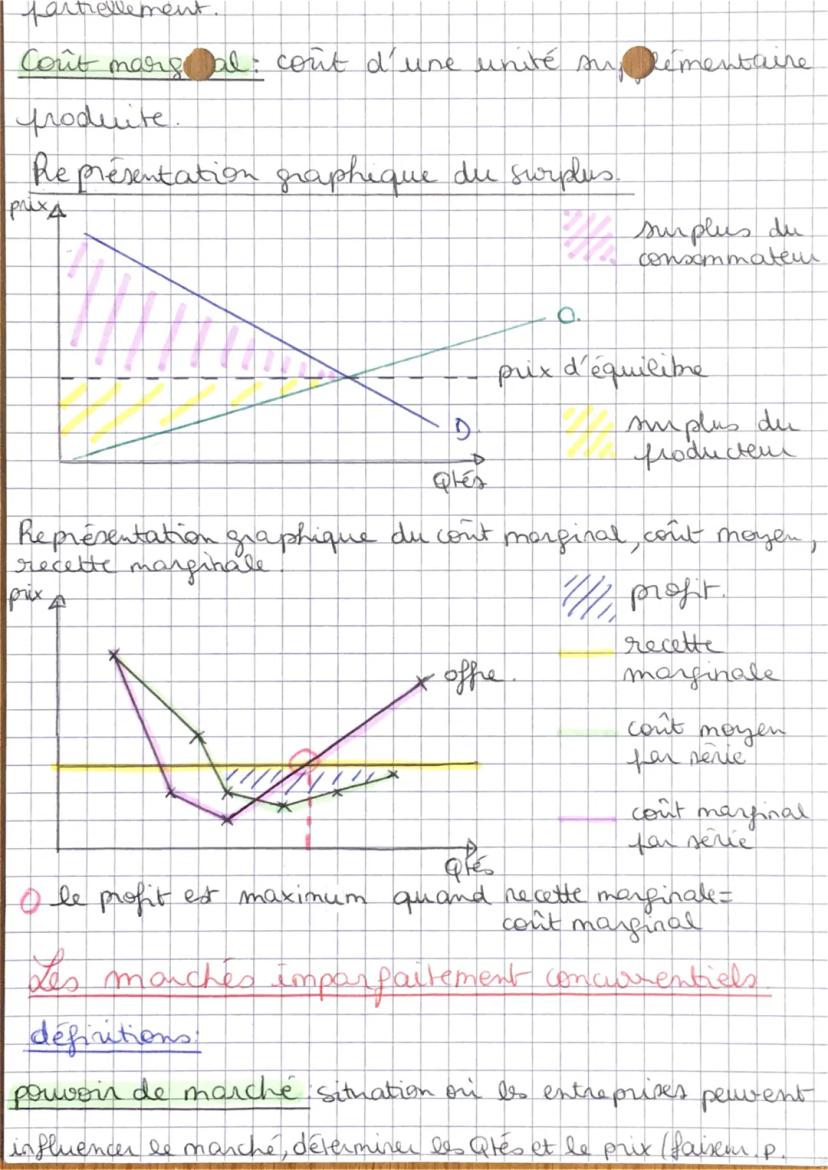 partiellement.
Coût marginal : coût d'une unité supplémentaire
produite.
Représentation graphique du surplus.
prix
surplus du
consommateur
O.
prix d'équilibre
D
surplus du
producteur
Qtés
Représentation graphique du coût marginal, coût moyen,
recette marginale.
prix
profit.
recette
marginale
offre.
coût moyen
par série
coût marginal
par série
Qtés
O le profit est maximum quand recette marginale =
coût marginal
Les marchés imparfaitement concurrentiels.
définitions:
pouvoir de marché : situation où les entreprises peuvent
influencer le marché, déterminer les Qtés et le prix (faiseur. p.